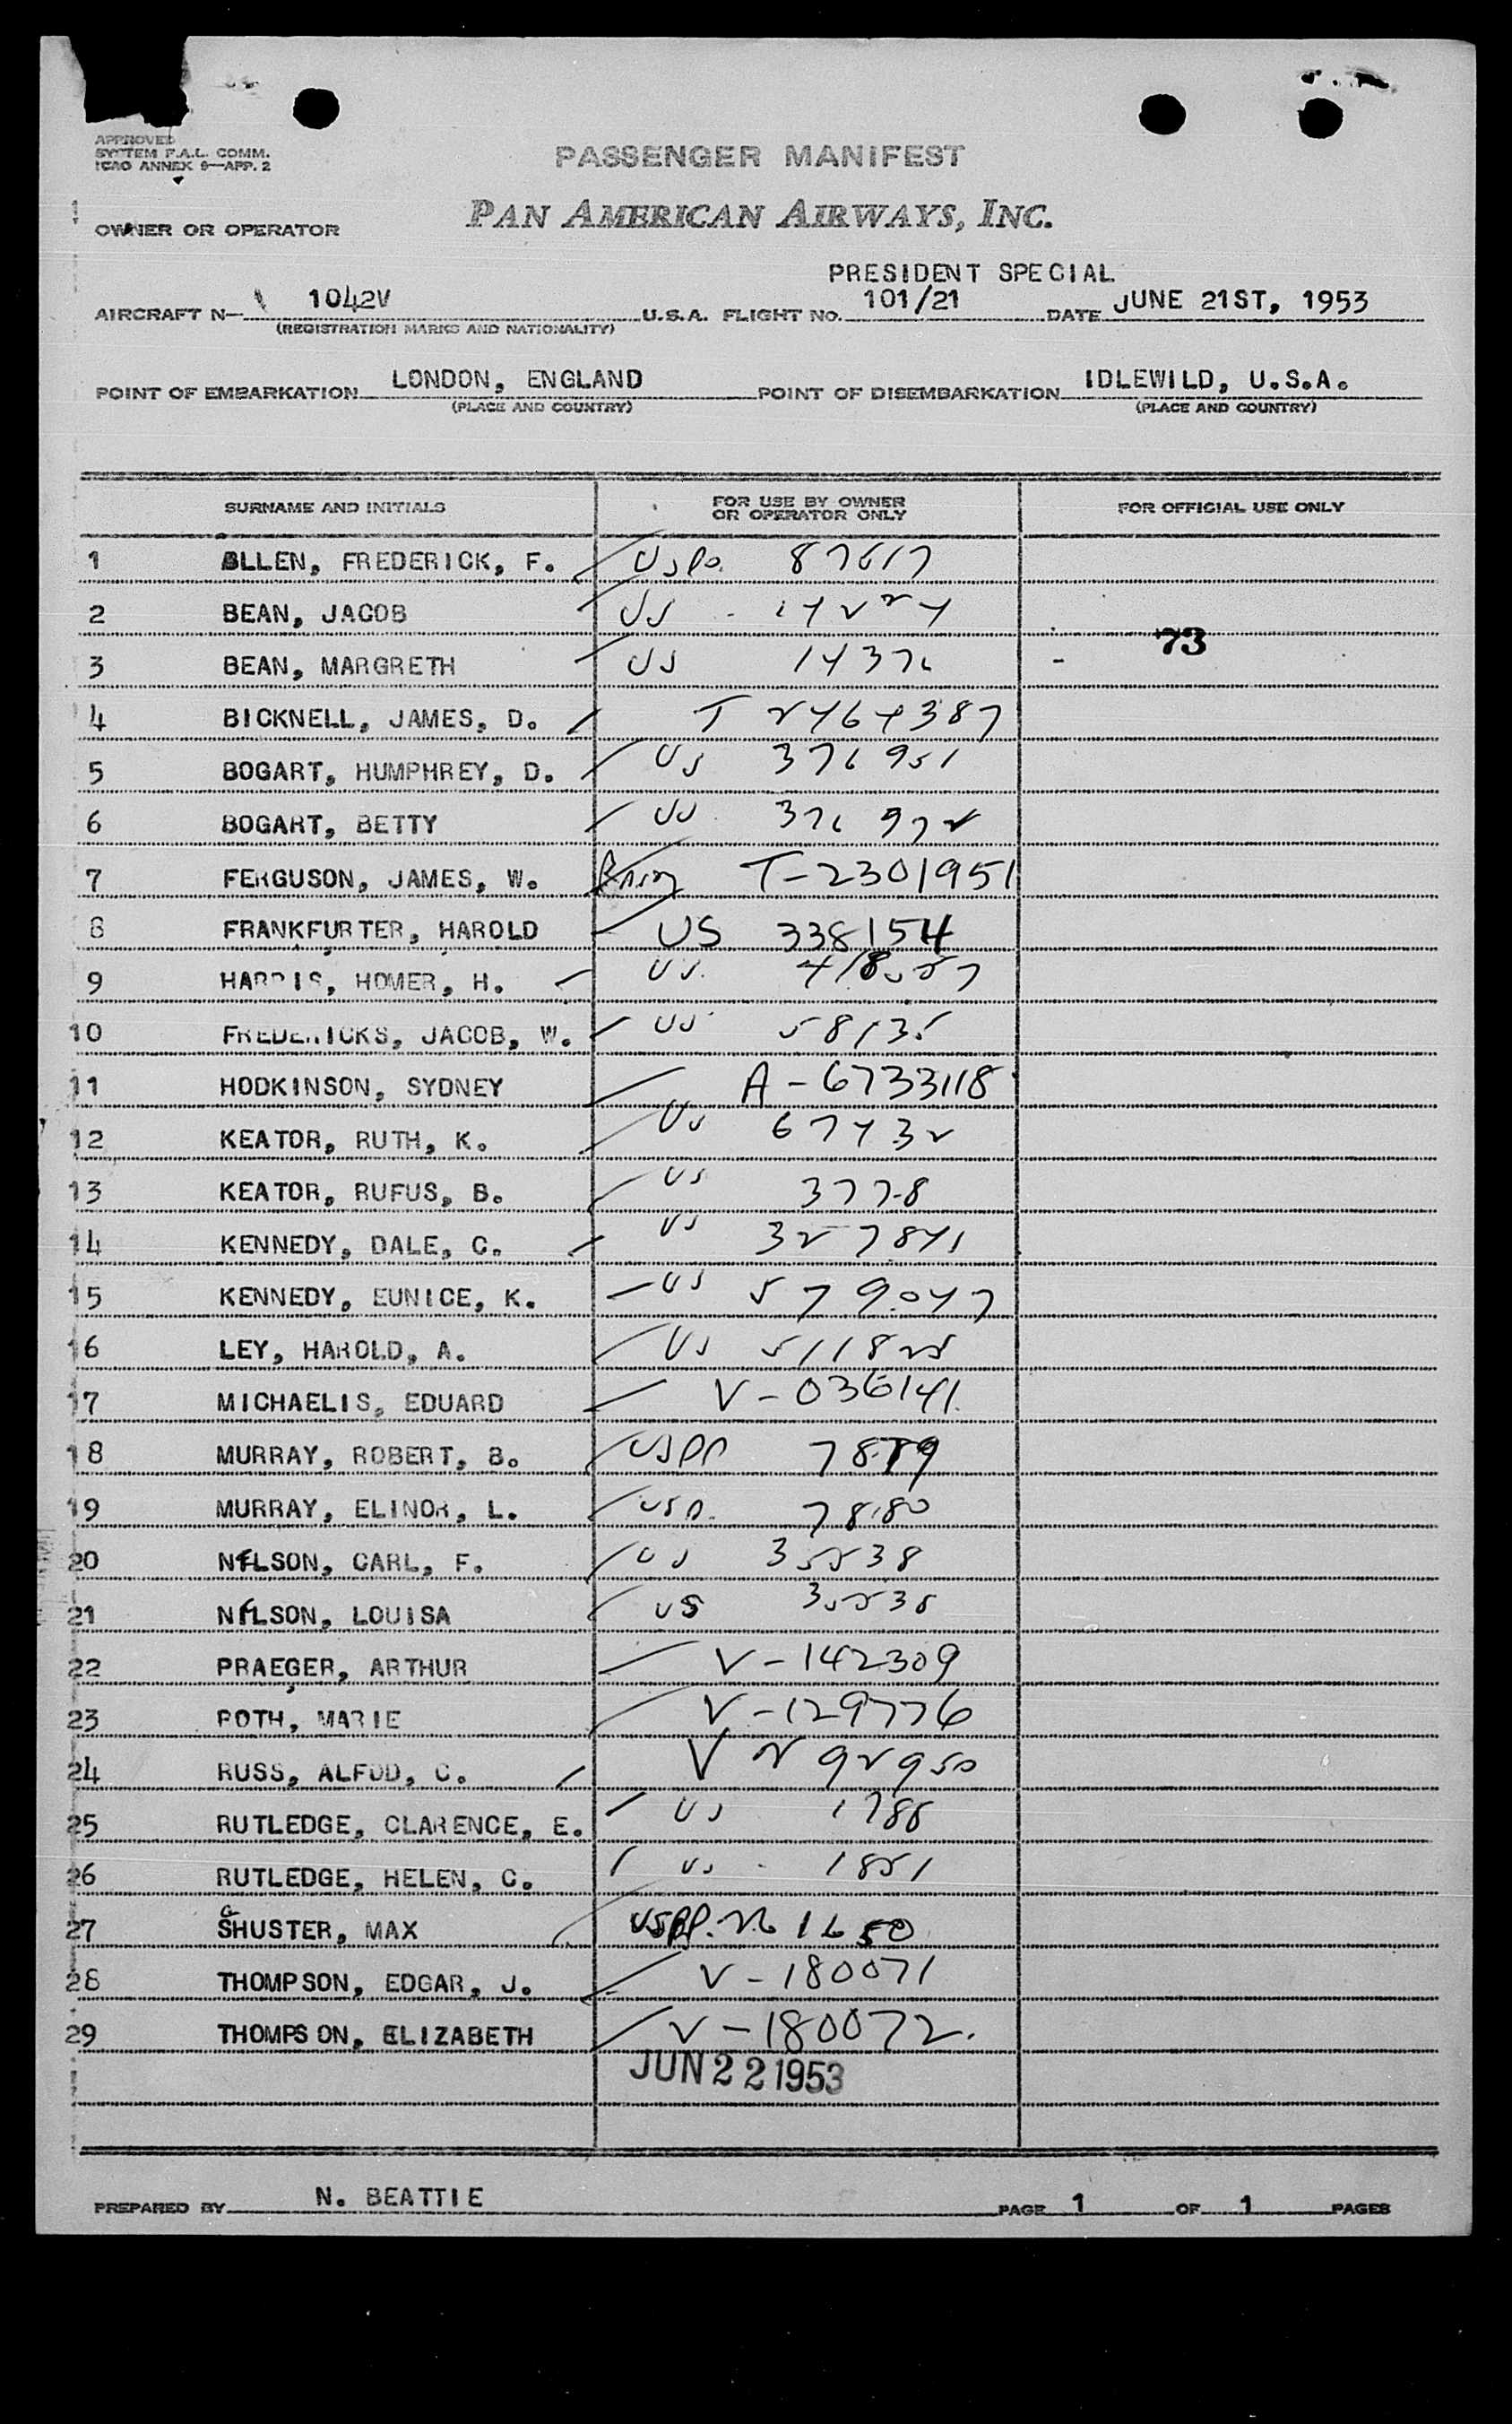 APPROVED
SYSTEM F.A.L. COMM.
ICAO ANNEX 9—APP. 2
PASSENGER MANIFEST
OWNER OR OPERATOR PAN AMERICAN AIRWAYS, INC.
PRESIDENT SPECIAL
AIRCRAFT N— 1042V U.S.A. FLIGHT NO. 101/21 DATE JUNE 21ST, 1953
(REGISTRATION MARKS AND NATIONALITY)
POINT OF EMBARKATION LONDON, ENGLAND POINT OF DISEMBARKATION IDLEWILD, U.S.A.
(PLACE AND COUNTRY) (PLACE AND COUNTRY)
SURNAME AND INITIALS FOR USE BY OWNER OR OPERATOR ONLY FOR OFFICIAL USE ONLY
1 ALLEN, FREDERICK, F. 87617
2 BEAN, JACOB US
73
3 BEAN, MARGRETH US 14376
4 BICKNELL, JAMES, D. T 2464387
5 BOGART, HUMPHREY, D. US 376951
6 BOGART, BETTY US 376972
7 FERGUSON, JAMES, W. T-2301951
8 FRANKFURTER, HAROLD US 338154
9 HARRIS, HOMER, H. US.
10 FREDERICKS, JACOB, W. US 58135
11 HODKINSON, SYDNEY A-6733118
12 KEATOR, RUTH, K. US 67432
13 KEATOR, RUFUS, B. US 377-8
14 KENNEDY, DALE, C. US 327841
15 KENNEDY, EUNICE, K. US 579047
16 LEY, HAROLD, A. US 511825
17 MICHAELIS, EDUARD V-036141
18 MURRAY, ROBERT, B. USPP 7879
19 MURRAY, ELINOR, L. USP. 7880
20 NELSON, CARL, F. US 35538
21 NELSON, LOUISA US 35538
22 PRAEGER, ARTHUR V-142309
23 ROTH, MARIE V-129776
24 RUSS, ALFOD, C. V 292950
25 RUTLEDGE, CLARENCE, E. US 1788
26 RUTLEDGE, HELEN, C. US 1851
27 SHUSTER, MAX USPP. No 1650
28 THOMPSON, EDGAR, J. V-180071
29 THOMPSON, ELIZABETH V-180072.
JUN 22 1953
PREPARED BY N. BEATTIE PAGE 1 OF 1 PAGES